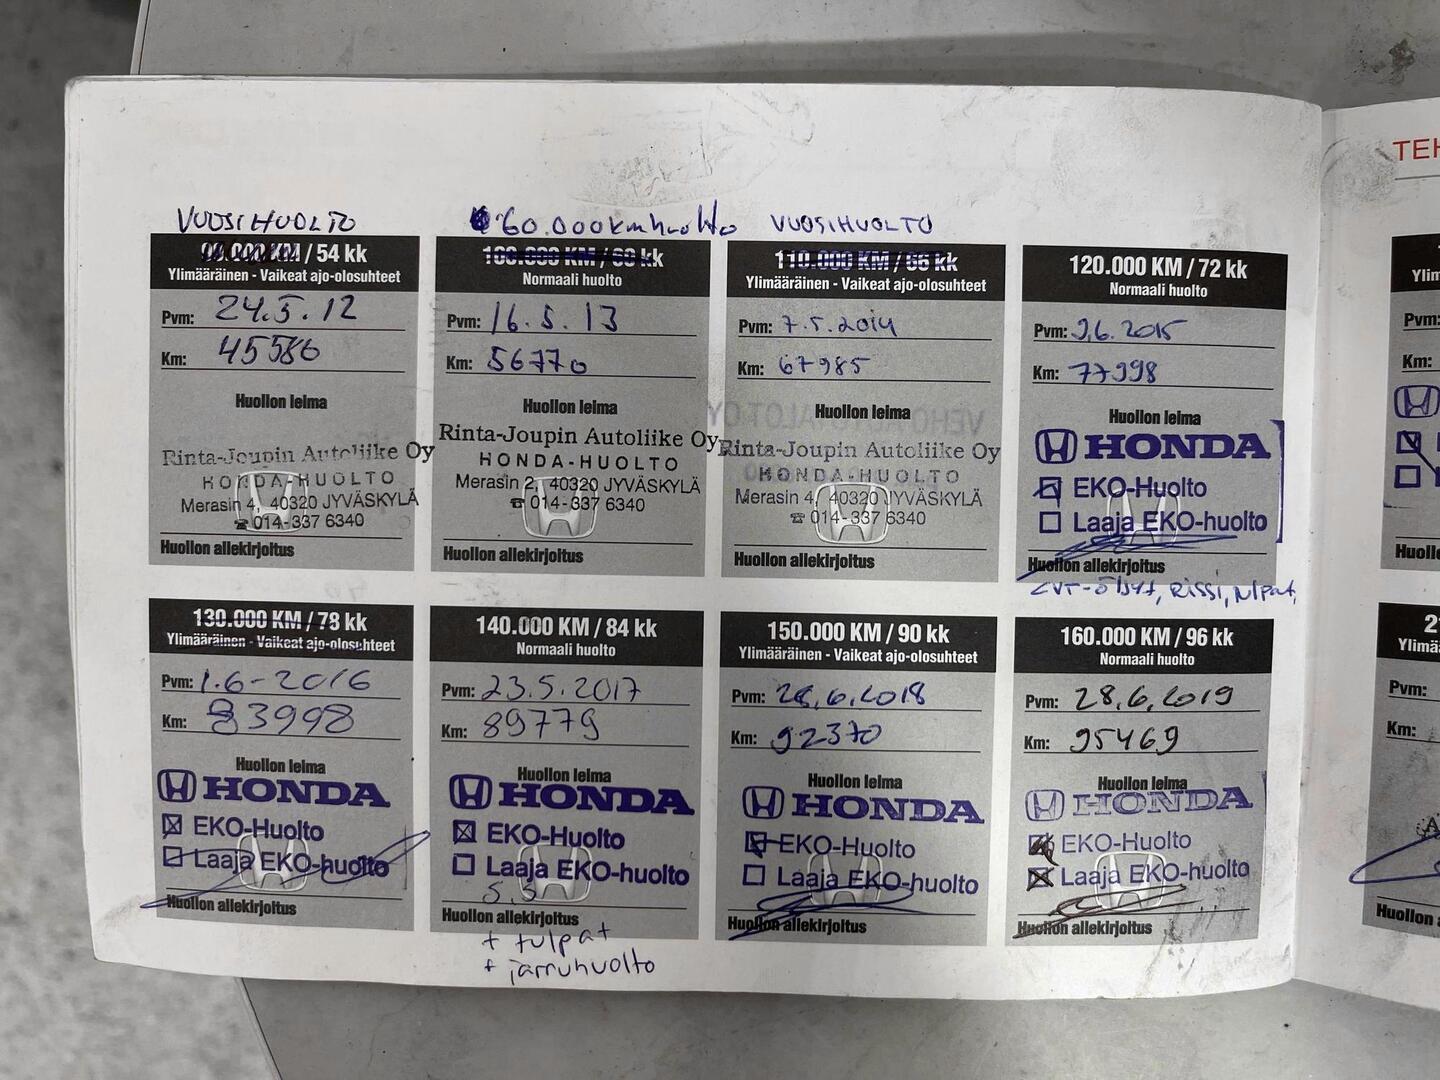 VUOSIHUOLTO
90.000 KM / 54 kk
Ylimääräinen - Vaikeat ajo-olosuhteet
Pvm: 24.5.12
Km: 45586
Huollon leima
Rinta-Joupin Autoliike Oy
HONDA-HUOLTO
Merasin 4, 40320 JYVÄSKYLÄ
☎ 014-337 6340
Huollon allekirjoitus
60.000km huolto
100.000 KM / 60 kk
Normaali huolto
Pvm: 16.5.13
Km: 56770
Huollon leima
Rinta-Joupin Autoliike Oy
HONDA-HUOLTO
Merasin 2, 40320 JYVÄSKYLÄ
☎ 014-337 6340
Huollon allekirjoitus
VUOSIHUOLTO
110.000 KM / 66 kk
Ylimääräinen - Vaikeat ajo-olosuhteet
Pvm: 7.5.2014
Km: 67985
Huollon leima
Rinta-Joupin Autoliike Oy
HONDA-HUOLTO
Merasin 4, 40320 JYVÄSKYLÄ
☎ 014-337 6340
Huollon allekirjoitus
120.000 KM / 72 kk
Normaali huolto
Pvm: 9.6.2015
Km: 77998
Huollon leima
HONDA
EKO-Huolto
Laaja EKO-huolto
Huollon allekirjoitus
CVT-öljyt, Rissi, tulpat,
130.000 KM / 78 kk
Ylimääräinen - Vaikeat ajo-olosuhteet
Pvm: 1.6-2016
Km: 83998
Huollon leima
HONDA
EKO-Huolto
Laaja EKO-huolto
Huollon allekirjoitus
140.000 KM / 84 kk
Normaali huolto
Pvm: 23.5.2017
Km: 89779
Huollon leima
HONDA
EKO-Huolto
Laaja EKO-huolto
Huollon allekirjoitus
+ tulpat
+ jarruhuolto
150.000 KM / 90 kk
Ylimääräinen - Vaikeat ajo-olosuhteet
Pvm: 28.6.2018
Km: 92370
Huollon leima
HONDA
EKO-Huolto
Laaja EKO-huolto
Huollon allekirjoitus
160.000 KM / 96 kk
Normaali huolto
Pvm: 28.6.2019
Km: 95469
Huollon leima
HONDA
EKO-Huolto
Laaja EKO-huolto
Huollon allekirjoitus
TEH
Ylim
Pvm:
Km:
Huoll
Ylimä
Pvm:
Km:
Huollon